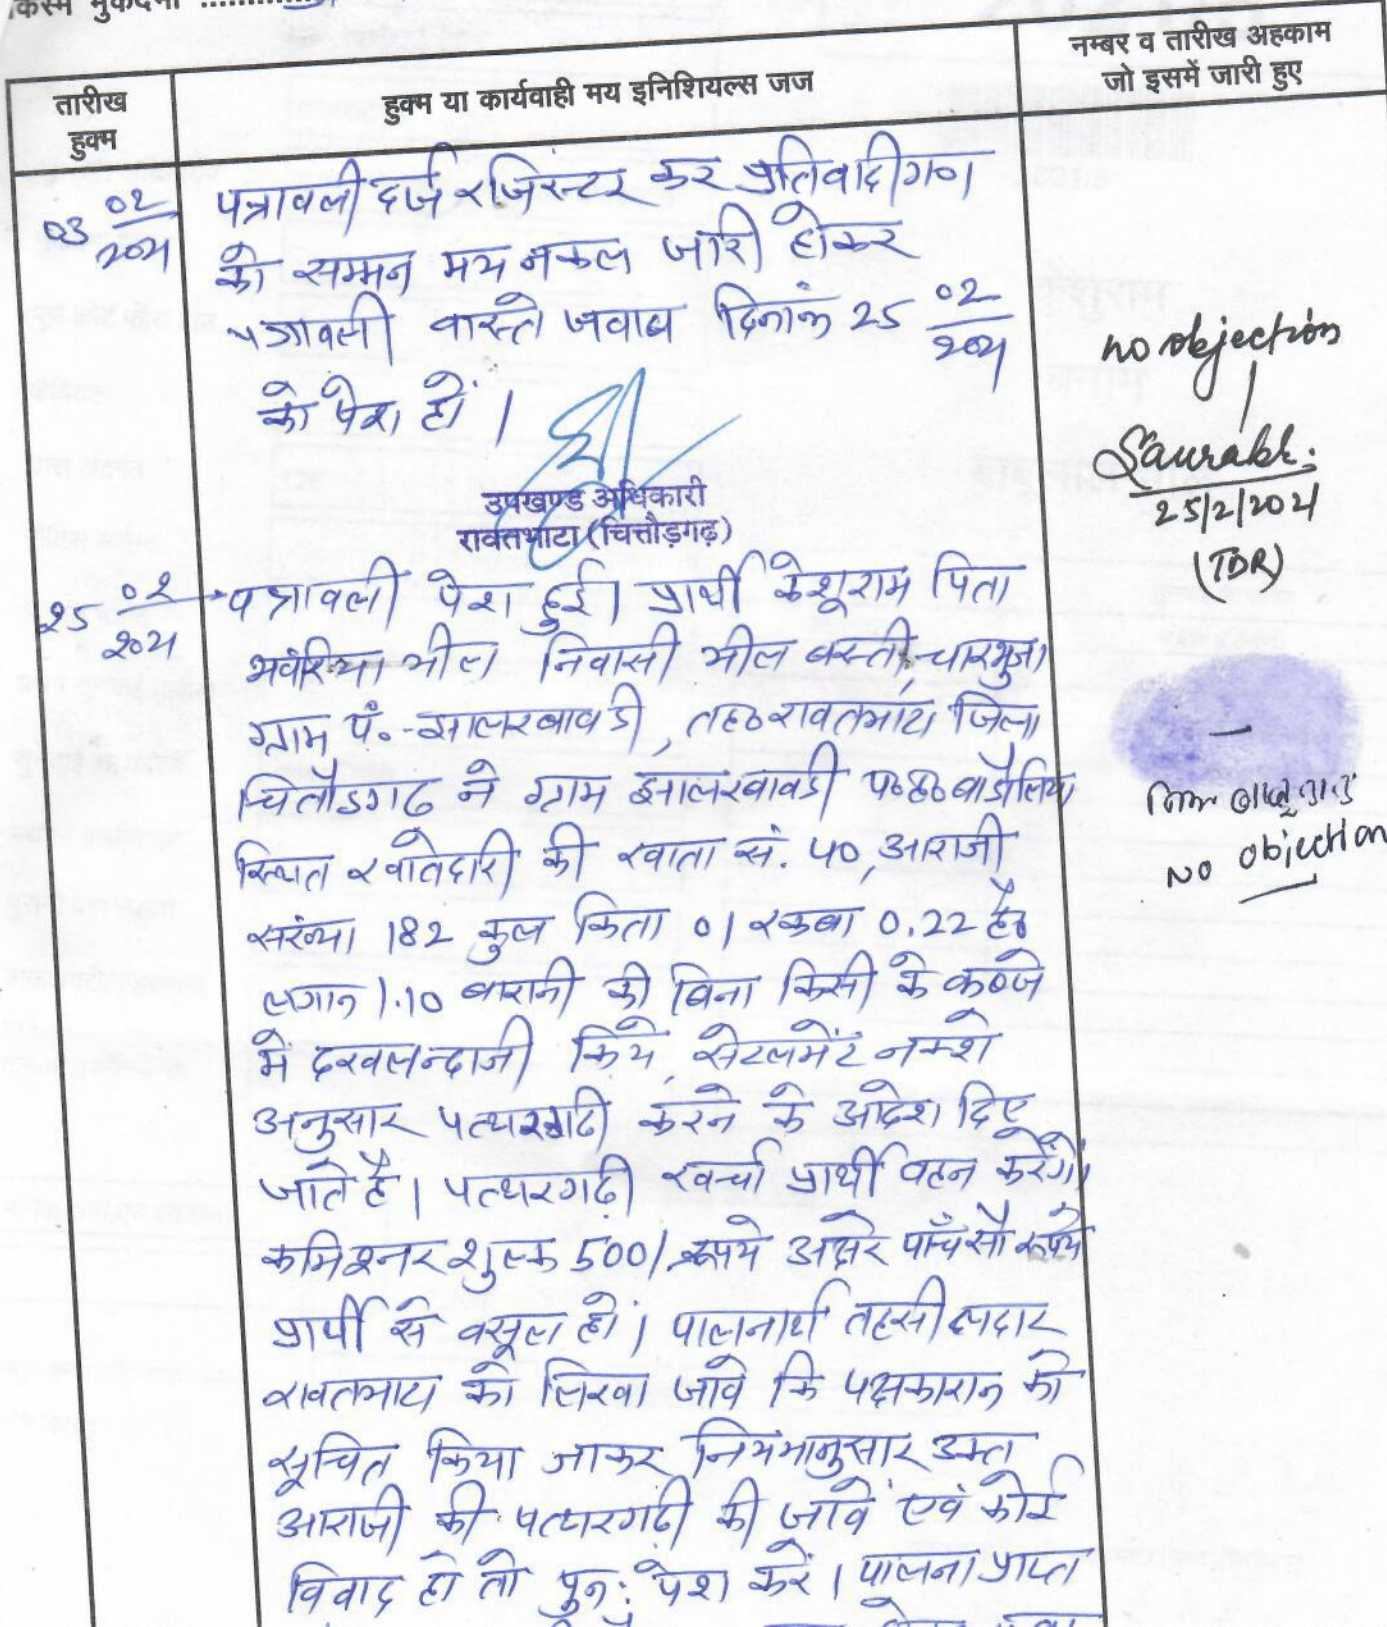 किस्म मुकदमा
तारीख
हुक्म
हुक्म या कार्यवाही मय इनिशियल्स जज
नम्बर व तारीख अहकाम
जो इसमें जारी हुए
03 02/2021
पत्रावली दर्ज रजिस्टर कर प्रतिवादीगण
को सम्मन मय नकल जारी होकर
पत्रावली वास्ते जवाब दिनांक 25 02/2021
को पेश हों।
उपखण्ड अधिकारी
रावतभाटा (चित्तौड़गढ़)
no objection
Saurabh.
25/2/2021
(TDR)
25 02/2021
पत्रावली पेश हुई। प्रार्थी केशूराम पिता
भवंरिया भील निवासी भील बस्ती, चारभुजा
ग्राम पं.-झालरबावडी, तह० रावतभाटा जिला
चितौडगढ ने ग्राम झालरबावडी प०ह० बाडोलिया
स्थित खातेदारी की खाता सं. 40, आराजी
संख्या 182 कुल किता 01 रकबा 0.22 है०
लगान 1.10 बारानी की बिना किसी के कब्जे
में दखलन्दाजी किये, सेटलमेंट नक्शे
अनुसार पत्थरगढी करने के आदेश दिए
जाते है। पत्थरगढी खर्चा प्रार्थी वहन करेंगे।
कमिश्नर शुल्क 500/ रूपये अक्षरे पाँच सौ रूपये
प्रार्थी से वसूल हों। पालनार्थ तहसीलदार
रावतभाटा को लिखा जावे कि पक्षकारान को
सूचित किया जाकर नियमानुसार उक्त
आराजी की पत्थरगढी की जावें एवं कोई
विवाद हो तो पुन: पेश करें। पालना प्राप्त
NO objection